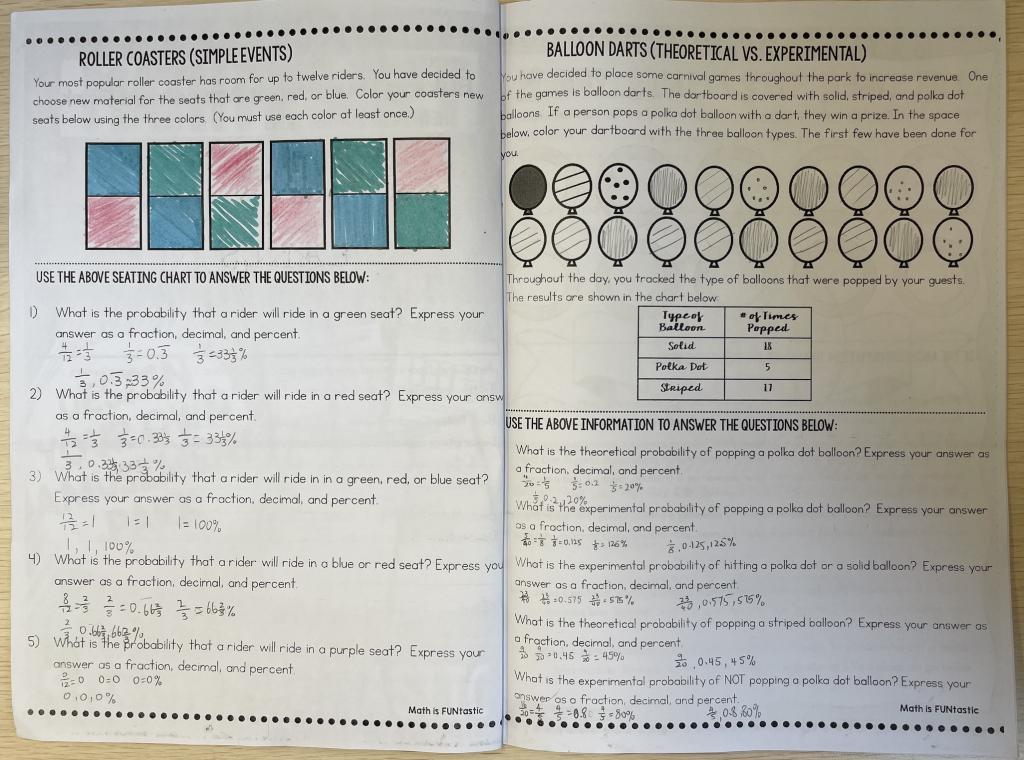 ROLLER COASTERS (SIMPLE EVENTS)
Your most popular roller coaster has room for up to twelve riders. You have decided to
choose new material for the seats that are green, red, or blue. Color your coasters new
seats below using the three colors. (You must use each color at least once.)
USE THE ABOVE SEATING CHART TO ANSWER THE QUESTIONS BELOW:
1) What is the probability that a rider will ride in a green seat? Express your
answer as a fraction, decimal, and percent.
4/12 = 1/3 1/3 = 0.3̅ 1/3 = 33 1/3 %
1/3, 0.3̅, 33%
2) What is the probability that a rider will ride in a red seat? Express your answ
as a fraction, decimal, and percent.
4/12 = 1/3 1/3 = 0.33 1/3 1/3 = 33 1/3 %
1/3, 0.33 1/3, 33 1/3 %
3) What is the probability that a rider will ride in in a green, red, or blue seat?
Express your answer as a fraction, decimal, and percent.
12/12 = 1 1 = 1 1 = 100%
1, 1, 100%
4) What is the probability that a rider will ride in a blue or red seat? Express you
answer as a fraction, decimal, and percent.
8/12 = 2/3 2/3 = 0.66 2/3 2/3 = 66 2/3 %
2/3 0.66 2/3, 66 2/3 %
5) What is the probability that a rider will ride in a purple seat? Express your
answer as a fraction, decimal, and percent.
0/12 = 0 0 = 0 0 = 0%
0, 0, 0%
Math is FUNtastic
BALLOON DARTS (THEORETICAL VS. EXPERIMENTAL)
You have decided to place some carnival games throughout the park to increase revenue. One
of the games is balloon darts. The dartboard is covered with solid, striped, and polka dot
balloons. If a person pops a polka dot balloon with a dart, they win a prize. In the space
below, color your dartboard with the three balloon types. The first few have been done for
you.
Throughout the day, you tracked the type of balloons that were popped by your guests.
The results are shown in the chart below:
Type of Balloon # of Times Popped
Solid 18
Polka Dot 5
Striped 17
USE THE ABOVE INFORMATION TO ANSWER THE QUESTIONS BELOW:
What is the theoretical probability of popping a polka dot balloon? Express your answer as
a fraction, decimal, and percent.
4/20 = 1/5 1/5 = 0.2 1/5 = 20%
1/5, 0.2, 20%
What is the experimental probability of popping a polka dot balloon? Express your answer
as a fraction, decimal, and percent.
5/40 = 1/8 1/8 = 0.125 1/8 = 12.5% 1/8, 0.125, 12.5%
What is the experimental probability of hitting a polka dot or a solid balloon? Express your
answer as a fraction, decimal, and percent.
23/40 = 0.575 23/40 = 57.5% 23/40, 0.575, 57.5%
What is the theoretical probability of popping a striped balloon? Express your answer as
a fraction, decimal, and percent.
9/20 9/20 = 0.45 9/20 = 45% 9/20, 0.45, 45%
What is the experimental probability of NOT popping a polka dot balloon? Express your
answer as a fraction, decimal, and percent.
16/20 = 4/5 4/5 = 0.8 4/5 = 80% 4/5, 0.8, 80%
Math is FUNtastic